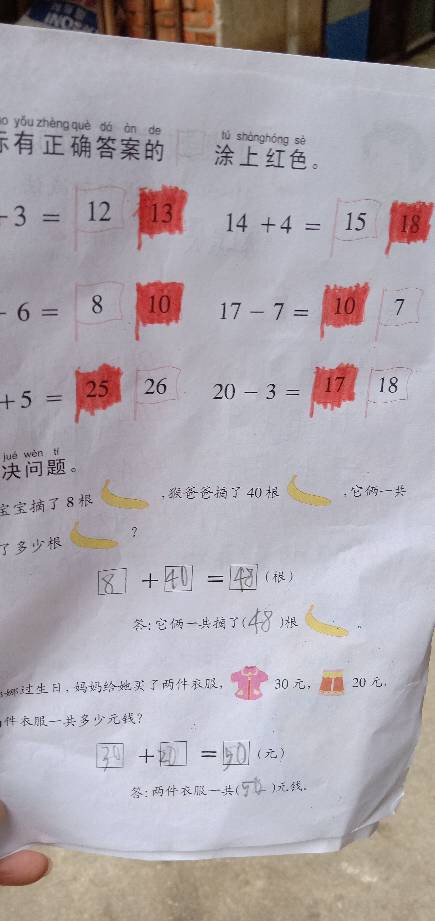 yǒu zhèng què dá àn de tú shàng hóng sè
有正确答案的 涂上红色。
3 = 12 13 14 + 4 = 15 18
- 6 = 8 10 17 - 7 = 10 7
+ 5 = 25 26 20 - 3 = 17 18
jué wèn tí
决问题。
宝宝摘了8根 ,猴爸爸摘了40根 ,它俩一共
了多少根 ?
8 + 40 = 48 (根)
答:它俩一共摘了(48)根 。
娜过生日,妈妈给她买了两件衣服, 30元, 20元,
件衣服一共多少元钱?
30 + 20 = 50 (元)
答:两件衣服一共(50)元钱。